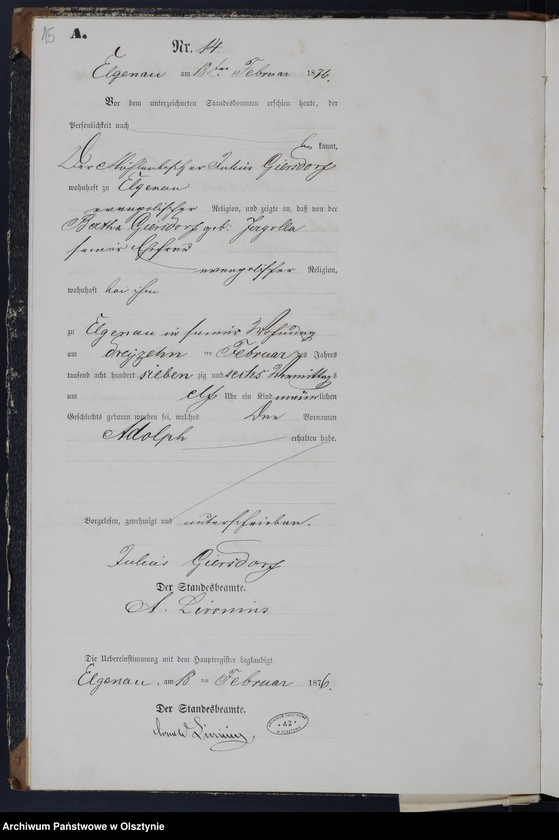 15
A.
Nr. 14
Elgenau am ten Februar 1876.
Vor dem unterzeichneten Standesbeamten erschien heute, der
Persönlichkeit nach
kannt,
Der Mühlenbescher Julius Giersdorf
wohnhaft zu Elgenau
evangelischer Religion, und zeigte an, daß von der
Bertha Giersdorf geb: Jergolla
seiner Ehefrau
evangelischer Religion,
wohnhaft bei ihm
zu Elgenau in seiner Wohnung
am dreizehn ten Februar des Jahres
tausend acht hundert sieben zig und sechs Vormittags
um elf Uhr ein Kind männlichen
Geschlechts geboren worden sei, welches Vornamen
Adolph erhalten habe.
Vorgelesen, genehmigt und unterschrieben.
Julius Giersdorf
Der Standesbeamte.
A.
Die Uebereinstimmung mit dem Hauptregister beglaubigt.
Elgenau, am ten Februar 1876.
Der Standesbeamte.
42
Archiwum Państwowe w Olsztynie